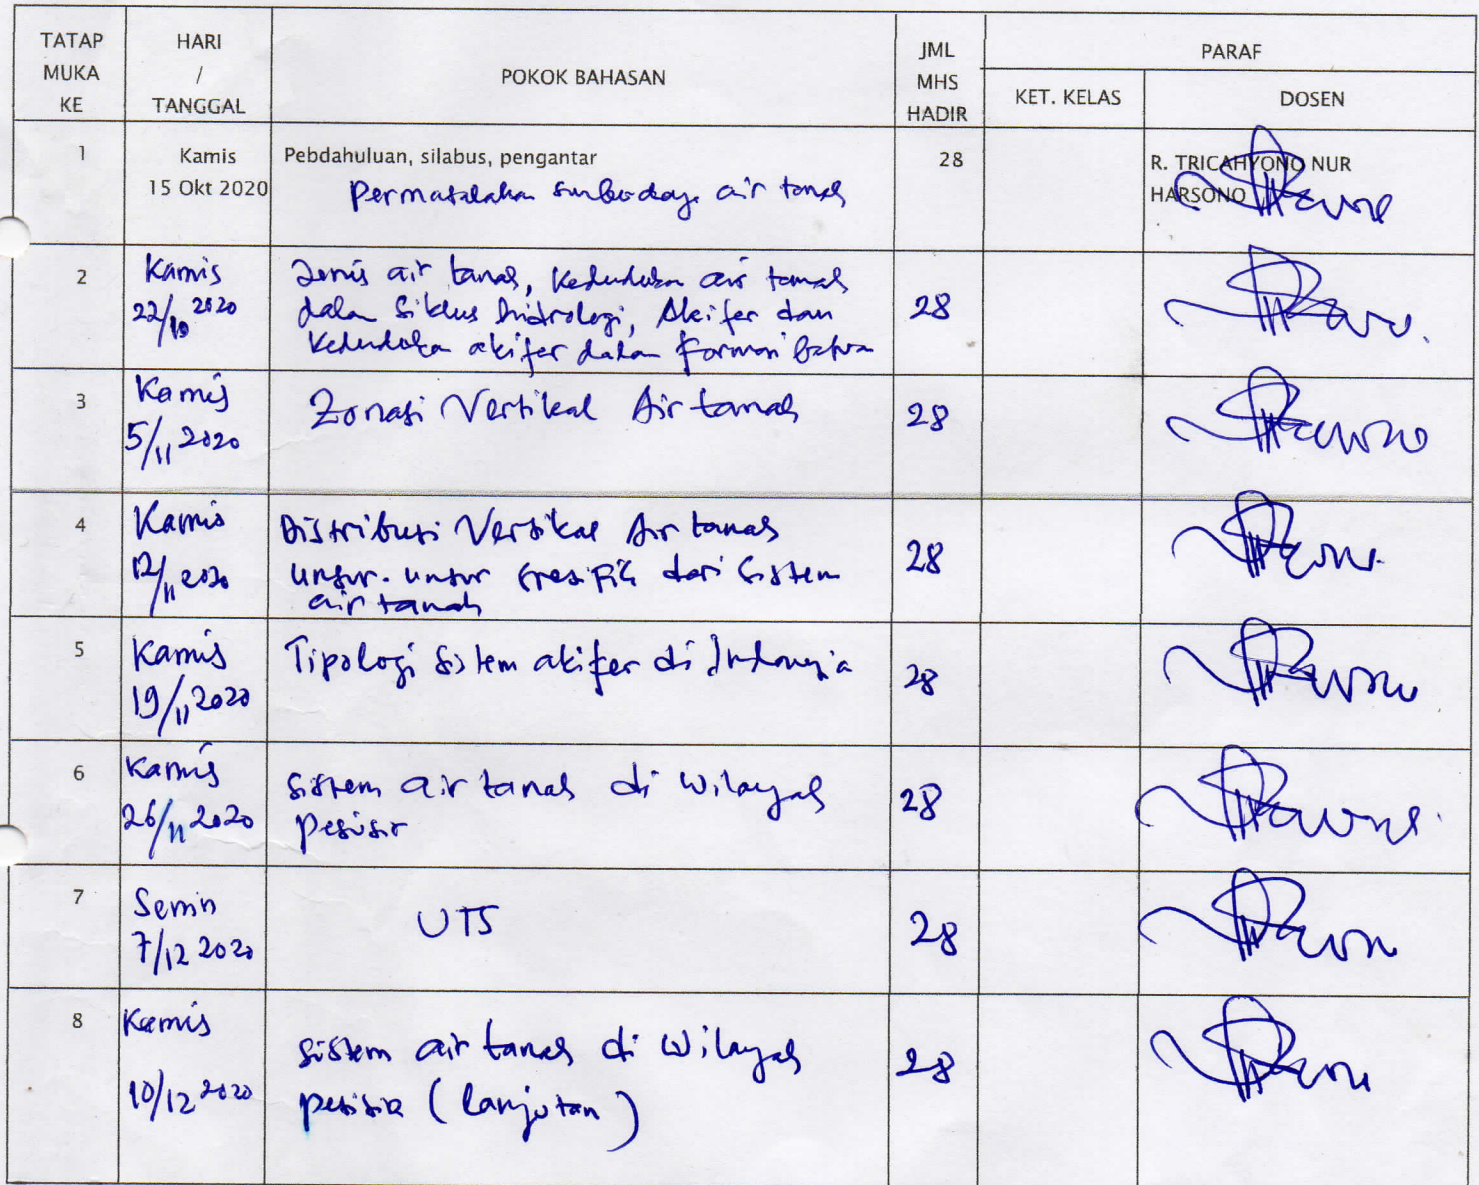 TATAP MUKA KE
HARI / TANGGAL
POKOK BAHASAN
JML MHS HADIR
PARAF
KET. KELAS
DOSEN
1
Kamis
15 Okt 2020
Pebdahuluan, silabus, pengantar
Permasalahan sumberdaya air tanah
28
R. TRICAHYONO NUR
HARSONO
2
Kamis
22/10 2020
Jenis air tanah, Kedudukan air tanah
dalam siklus hidrologi, Akifer dan
Kedudukan akifer dalam formasi batuan
28
3
Kamis
5/11 2020
Zonasi Vertikal Air tanah
28
4
Kamis
12/11 2020
Distribusi Vertikal Air tanah
unsur-unsur spesifik dari sistem
air tanah
28
5
Kamis
19/11 2020
Tipologi sistem akifer di Indonesia
28
6
Kamis
26/11 2020
Sistem air tanah di wilayah
pesisir
28
7
Senin
7/12 2020
UTS
28
8
Kamis
10/12 2020
Sistem air tanah di wilayah
pesisir (lanjutan)
28